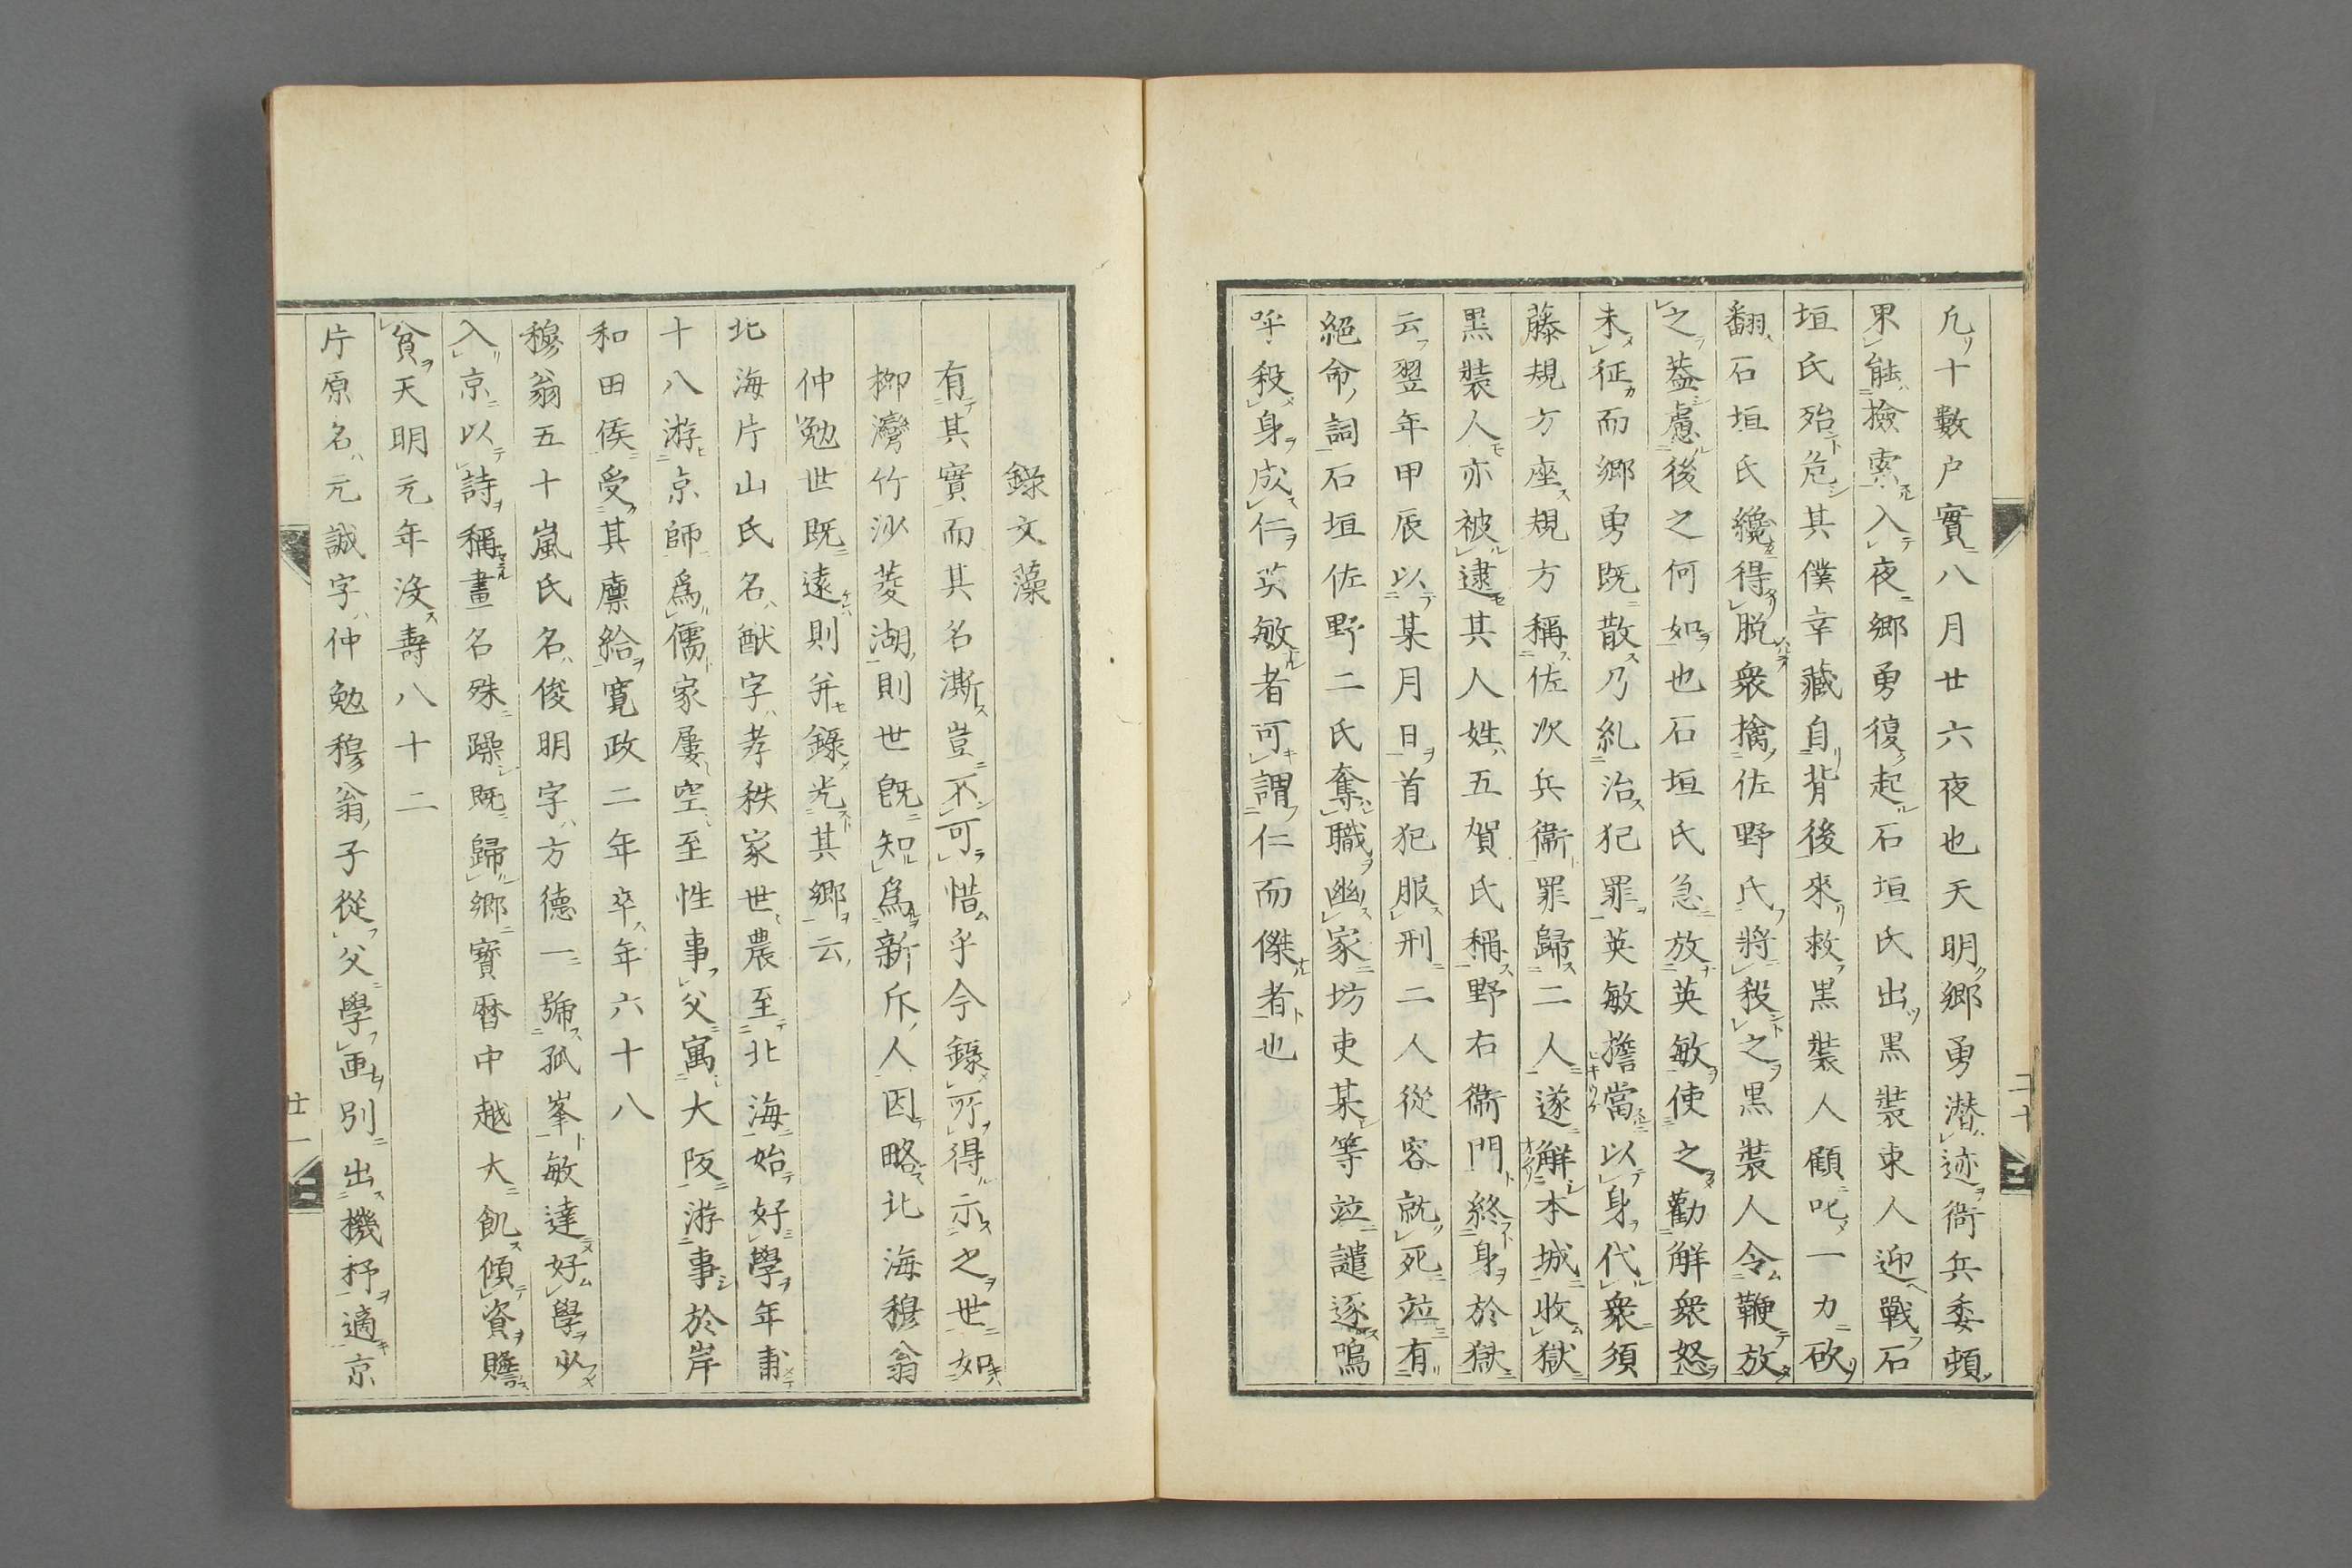 凡十數户實八月廿六夜也天明郷勇潜迹衙兵委頓
果能撿索入夜郷勇復起石垣氏出黒裝束人迎戰石
垣氏殆危其僕幸藏自背後來救黒裝人顧叱一力砍
翻石垣氏纔得脱衆擒佐野氏將殺之黒裝人令鞭放
之葢慮後之何如也石垣氏急放英敏使之勸解衆怒
未征而郷勇既散乃糺治犯罪英敏擔當以身代衆須
藤規方座規方稱佐次兵衞罪歸二人遂解本城收獄
黒裝人亦被逮其人姓五賀氏稱野右衞門終身於獄
云翌年甲辰以某月日首犯服刑二人從容就死竝有
絕命詞石垣佐野二氏奪職幽家坊吏某等竝譴逐嗚
呼殺身成仁英敏者可謂仁而傑者也
二十
錄文藻
有其實而其名澌豈不可惜乎今錄所得示之世如
栁灣竹沙菱湖則世既知爲新斥人因略北海穆翁
仲勉世既遠則并錄光其郷云
北海片山氏名猷字孝秩家世農至北海始好學年甫
十八游京師爲儒家屢空至性事父寓大阪游事於岸
和田矦受其廪給寛政二年卒年六十八
穆翁五十嵐氏名俊明字方德一號孤峯敏達好學少
入京以詩稱畫名殊躁既歸郷寳暦中越大飢傾資贍
貧天明元年没壽八十二
片原名元誠字仲勉穆翁子從父學画別出機杼適京
廿一